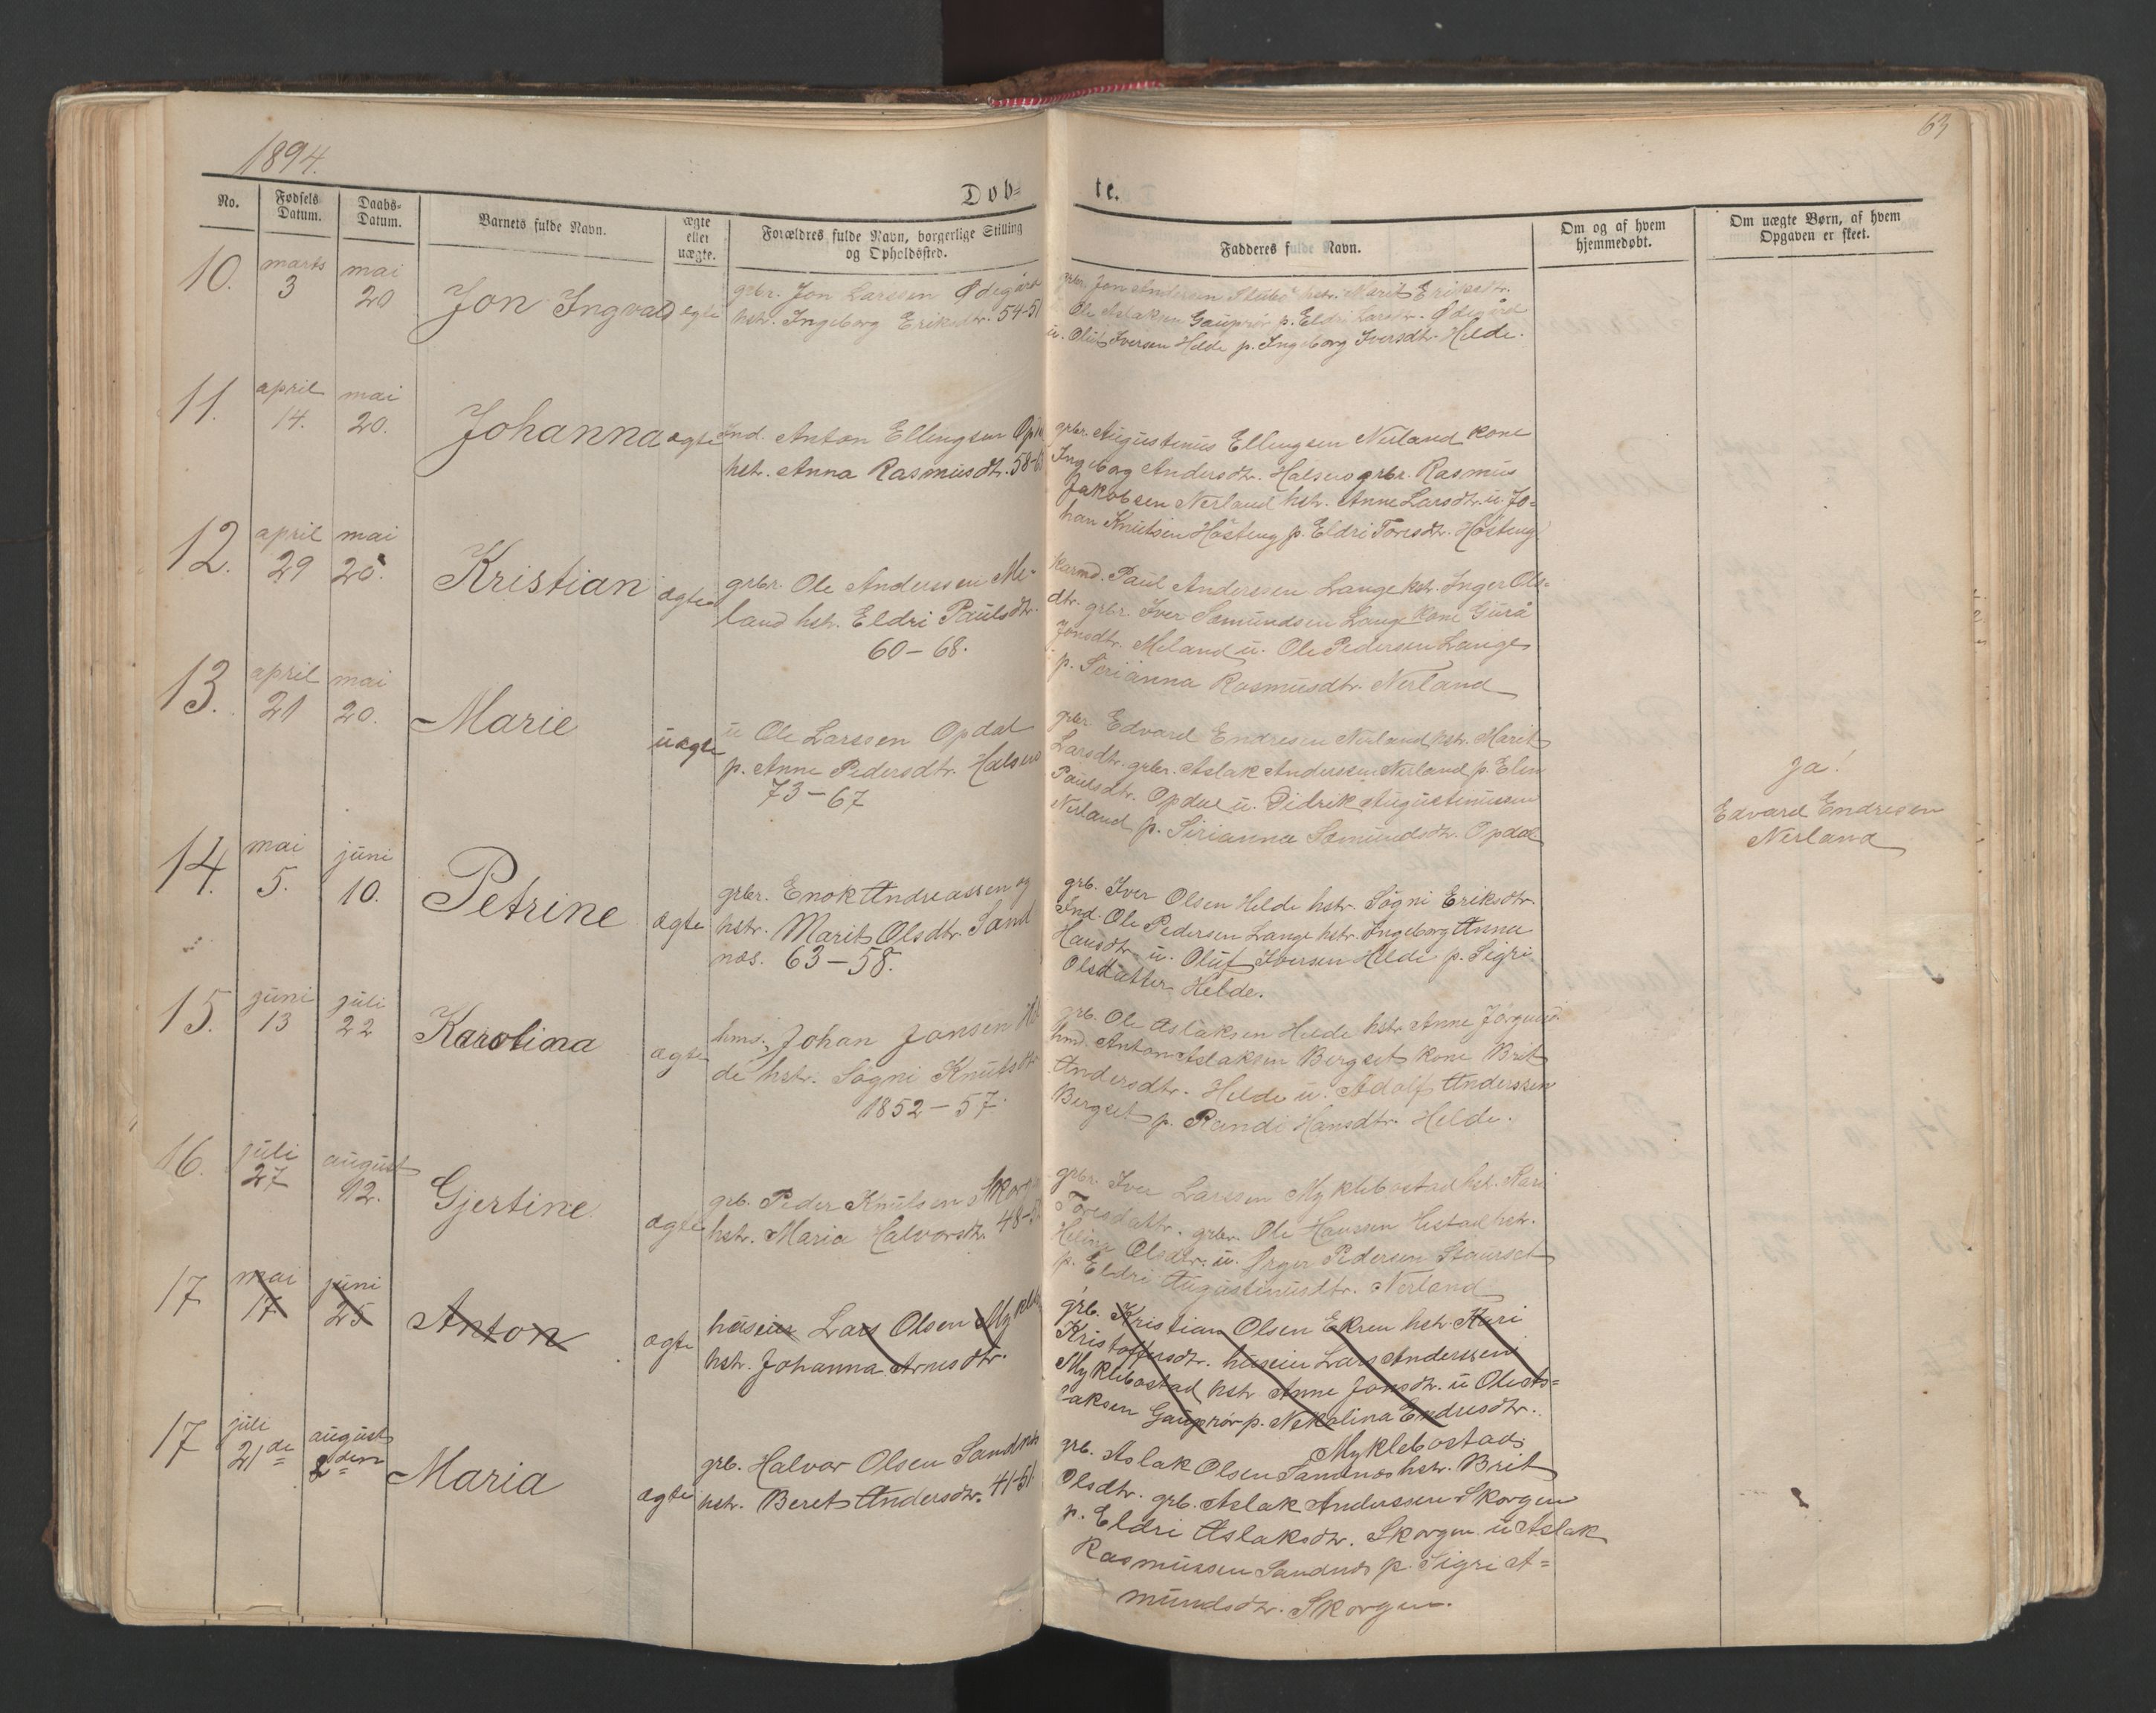 1894.
63
Døb=
te.
No.
Fødsels
Datum.
Daabs-
Datum.
Barnets fulde Navn.
ægte
eller
uægte.
Forældres fulde Navn, borgerlige Stilling
og Opholdssted.
Fadderes fulde Navn.
Om og af hvem
hjemmedøbt.
Om uægte Børn, af hvem
Opgaven er skeet.
10.
marts
3
mai
20
Jon Ingvald
ægte
grbr. Jon Larssen Ødegård
hstr. Ingeborg Eriksdtr. 54-51
grbr. Jon Anderssen hstr. Marit Eriksdtr.
Ole Aslaksen Gauprør p. Eldri Larsdtr. Ødegård
u. Oluf Iversen Helde p. Ingeborg Iversdtr. Helde.
11.
april
14.
mai
20.
Johanna
ægte
Ind. Anton Ellingsen
hstr. Anna Rasmusdtr. 58-
grbr. Augustinus Ellingsen Nerland kone
Ingeborg Andersdtr. Halsen grbr. Rasmus
Jakobsen Nerland hstr. Anne Larsdtr. u. Jo-
han Knutsen Hösteng p. Eldri Toresdtr. Hösteng
12.
april
29
mai
20.
Kristian
ægte
grbr. Ole Anderssen Me-
land hstr. Eldri Paulsdtr.
60-68.
Karmd. Paul Anderssen Lange hstr. Inger Ols-
dtr. grbr. Iver Samundsen Lange kone Gurå
Jonsdtr. Meland u. Ole Pedersen Lange
p. Serianna Rasmusdtr. Nerland
13.
april
21
mai
20.
Marie
uægte
u Ole Larssen Opdal
p. Anne Pedersdtr. Halsen
73-67
grbr. Edvard Endresen Nerland hstr. Marit
Larsdtr. grbr. Aslak Anderssen Nerland p. Elen
Paulsdtr. Opdal u. Didrik Augustinussen
Nerland p. Sirianna Samundsdtr. Opdal
ja!
Edvard Endresen
Nerland
14.
mai
5.
juni
10.
Petrine
ægte
grbr. Enok Andreassen og
hstr. Marit Olsdtr. Sand
næs. 63-58.
grb. Iver Olsen Helde hstr. Sögni Eriksdtr.
Ind. Ole Pedersen Lange hstr. Ingeborg Anna
Hansdtr. u. Oluf Iversen Helde p. Sigri
Olsdatter Helde.
15.
juni
13
juli
22
Karolina
ægte
hms. Johan Jansen Hel
de hstr. Sögni Knutsdtr
1852-57.
grb. Ole Aslaksen Helde hstr. Anne
hmd. Anton Aslaksen Bergset kone Brit
Andersdtr. Helde u. Adolf Anderssen
Bergset p. Randi Hansdtr. Helde.
16.
juli
27
august
12.
Gjertine
ægte
grb. Peder Knutsen Skorg
hstr. Maria Halvorsdtr. 48-
grbr. Iver Larssen Myklebostad hst. Kari
Toresdattr. grbr. Ole Hanssen Hestad hstr.
Olsdtr. u. Pedersen Staurset
p. Eldri Augustinusdtr. Nerland
17
mai
17
juni
25
Anton
ægte
huseier Lars Olsen Mykleb
hstr. Johanna Arnesdtr.
grb. Kristian Olsen Ekren hstr. Kari
Kristoffersdtr. huseier Lars Anderssen
Myklebostad hstr Anne Jonsdtr. u Ole As=
laksen Gauprør p. Nekolina Endresdtr.
Myklebostad.
17
juli
21de
august
2den
Maria
ægte
grb. Halvor Olsen Sandnæs
hstr. Beret Andersdtr. 41-51
grb. Aslak Olsen Sandnæs hstr. Brit
Olsdtr. grb. Aslak Anderssen Skorgen
p. Eldri Aslaksdtr. Skorgen u Aslak
Rasmussen Sandnæs p. Sigri A=
mundsdtr. Skorgen.